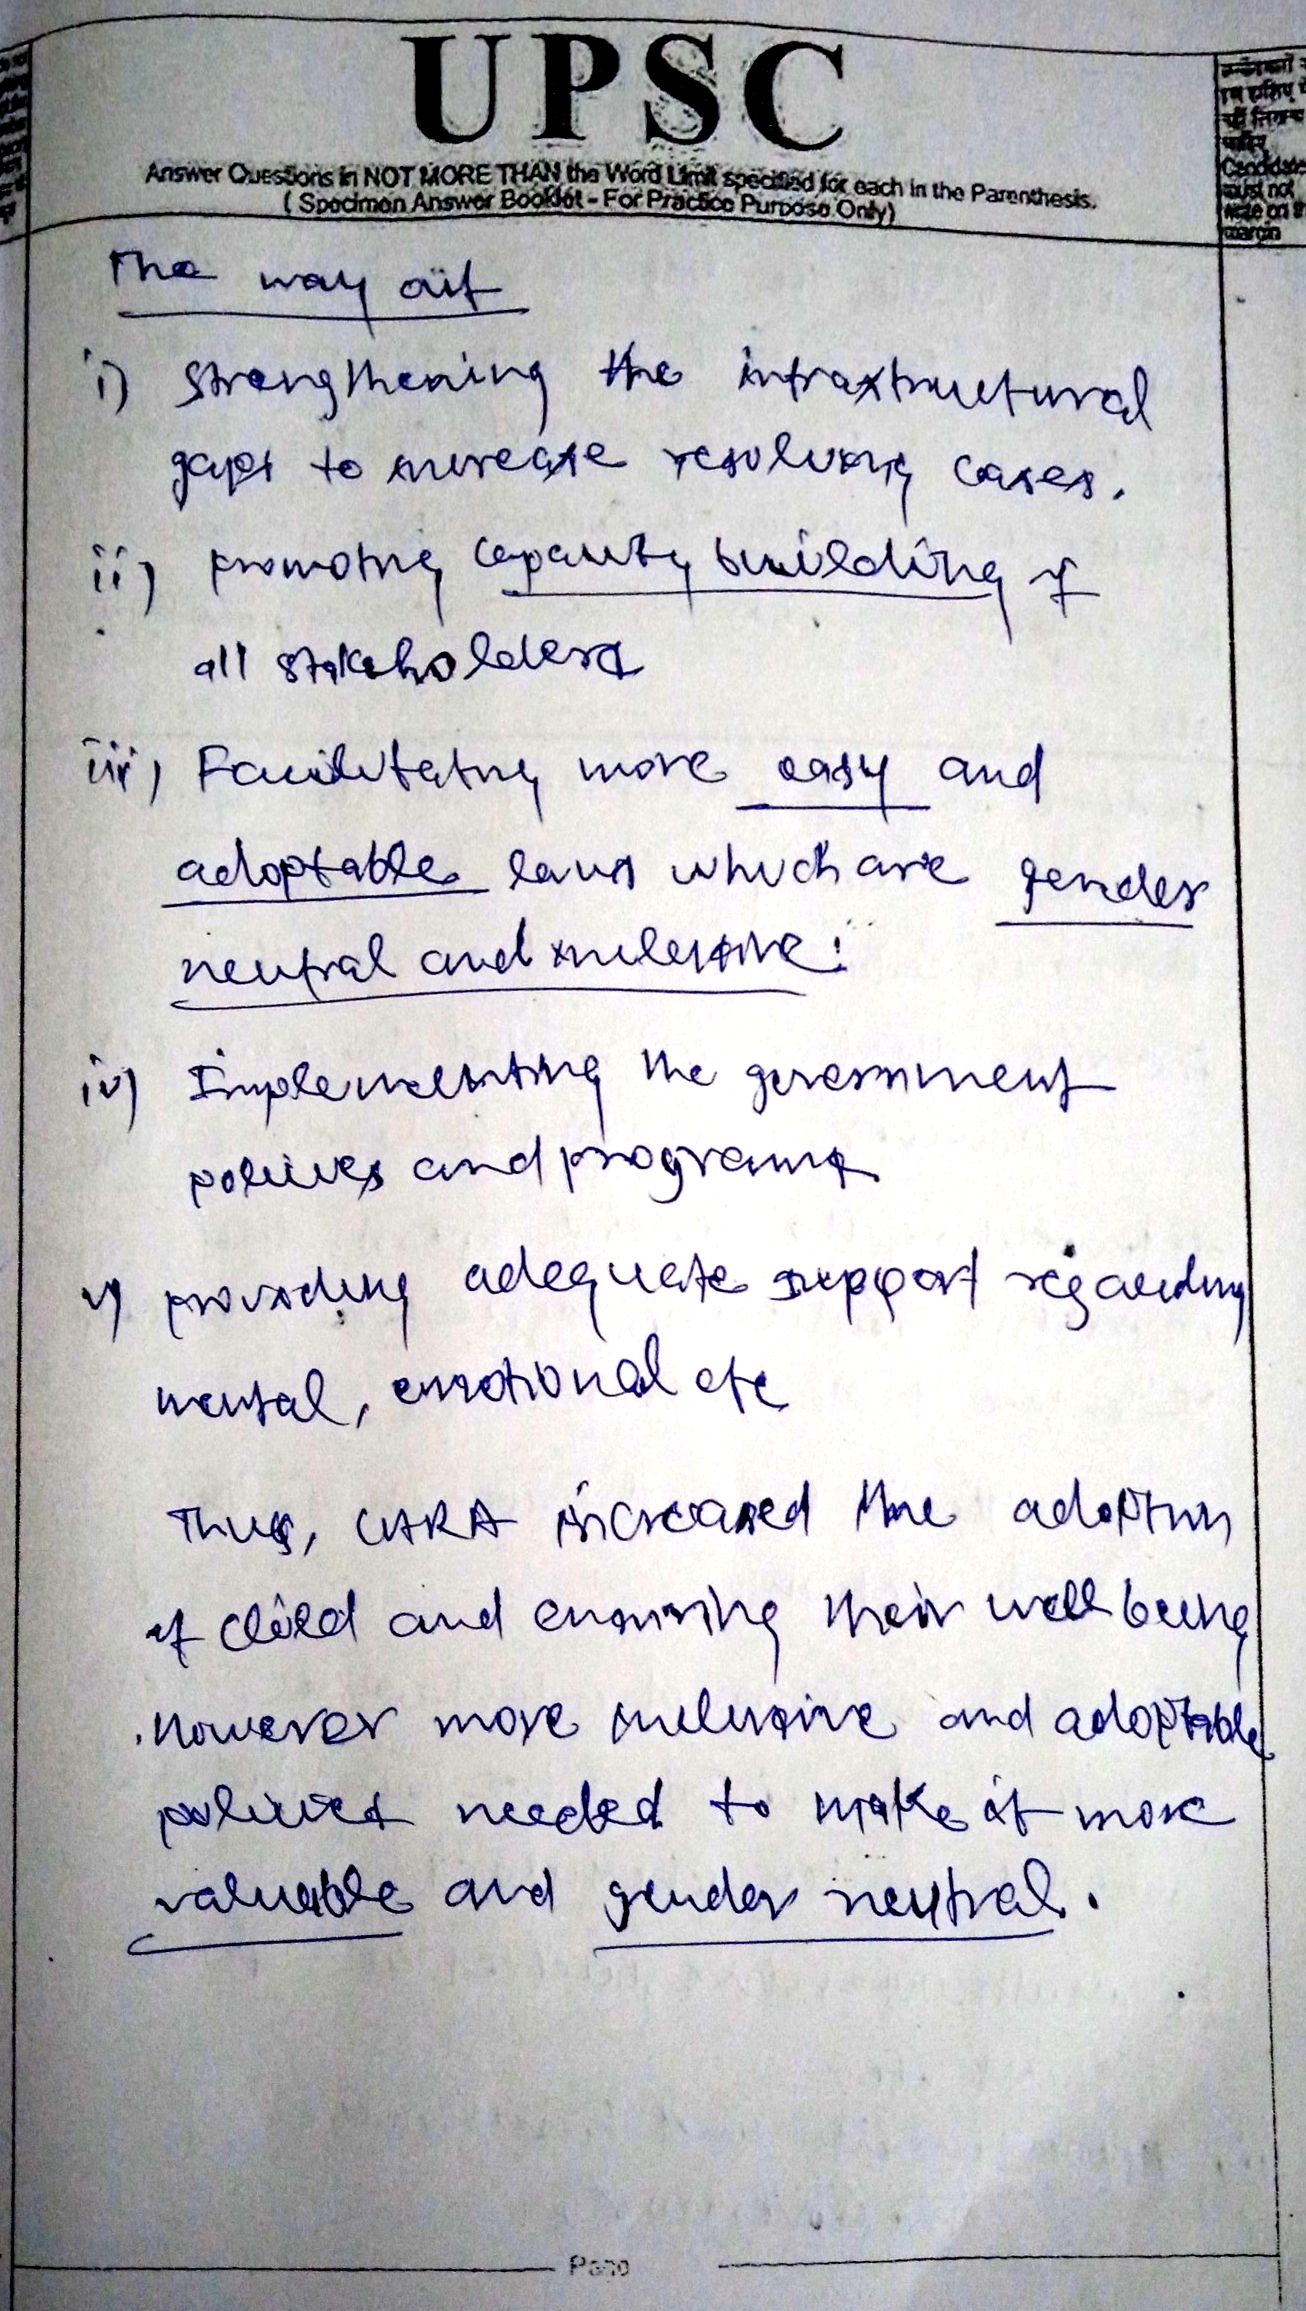 UPSC
Answer Questions in NOT MORE THAN the Word Limit specified for each in the Parenthesis.
( Specimen Answer Booklet - For Practice Purpose Only)
Candidates
must not
write on the
margin
The way out
i) Strengthening the infrastructural
gaps to increase resolving cases.
ii) promoting capacity building of
all stakeholders
iii) Facilitating more easy and
adoptable laws which are gender
neutral and inclusive.
iv) Implementing the government
policies and programs
v) providing adequate support regarding
mental, emotional etc
Thus, CARA increased the adoption
of child and ensuring their well being
. However more inclusive and adoptable
policies needed to make it more
valuable and gender neutral.
Page